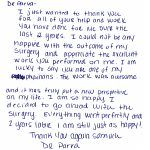 De Parra-
I just wanted to thank you
for all of your help and work
you have done for me over the
last 2 years. I could not be any
happier with the outcome of my
surgery and appreciate the excellent
work you performed on me. I am
lucky to say you are one of my
physicians. The work was awesome
and it has truly put a new perspective
on my life. I am so happy I
decided to go ahead with the
surgery. Everything went perfectly and
2 years later I am still just as happy!
Thank you again so much
De Parra